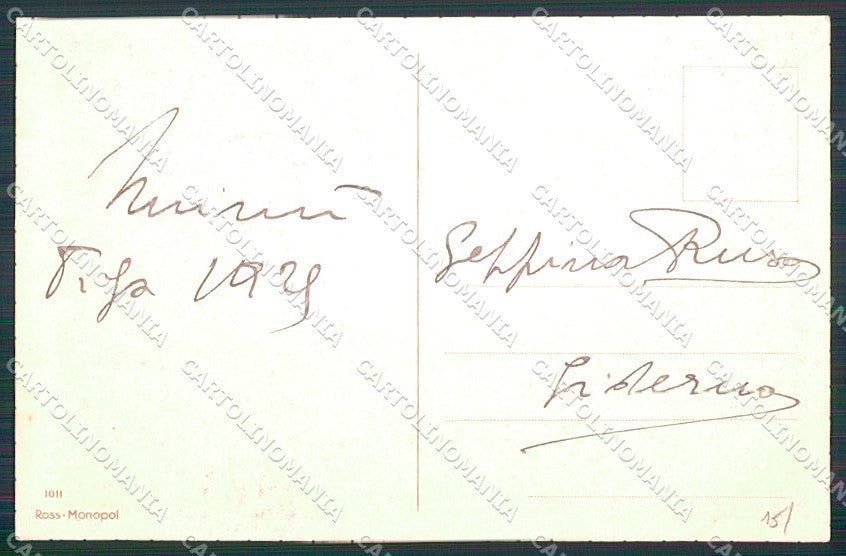 1929
Geppina Russo
Siderno
1011
Ross-Monopol
15/
CARTOLINOMANIA